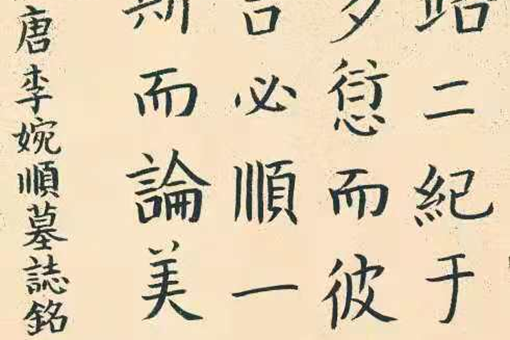 二紀于
愆而彼
必順一
斯而論美
唐李婉順墓誌銘